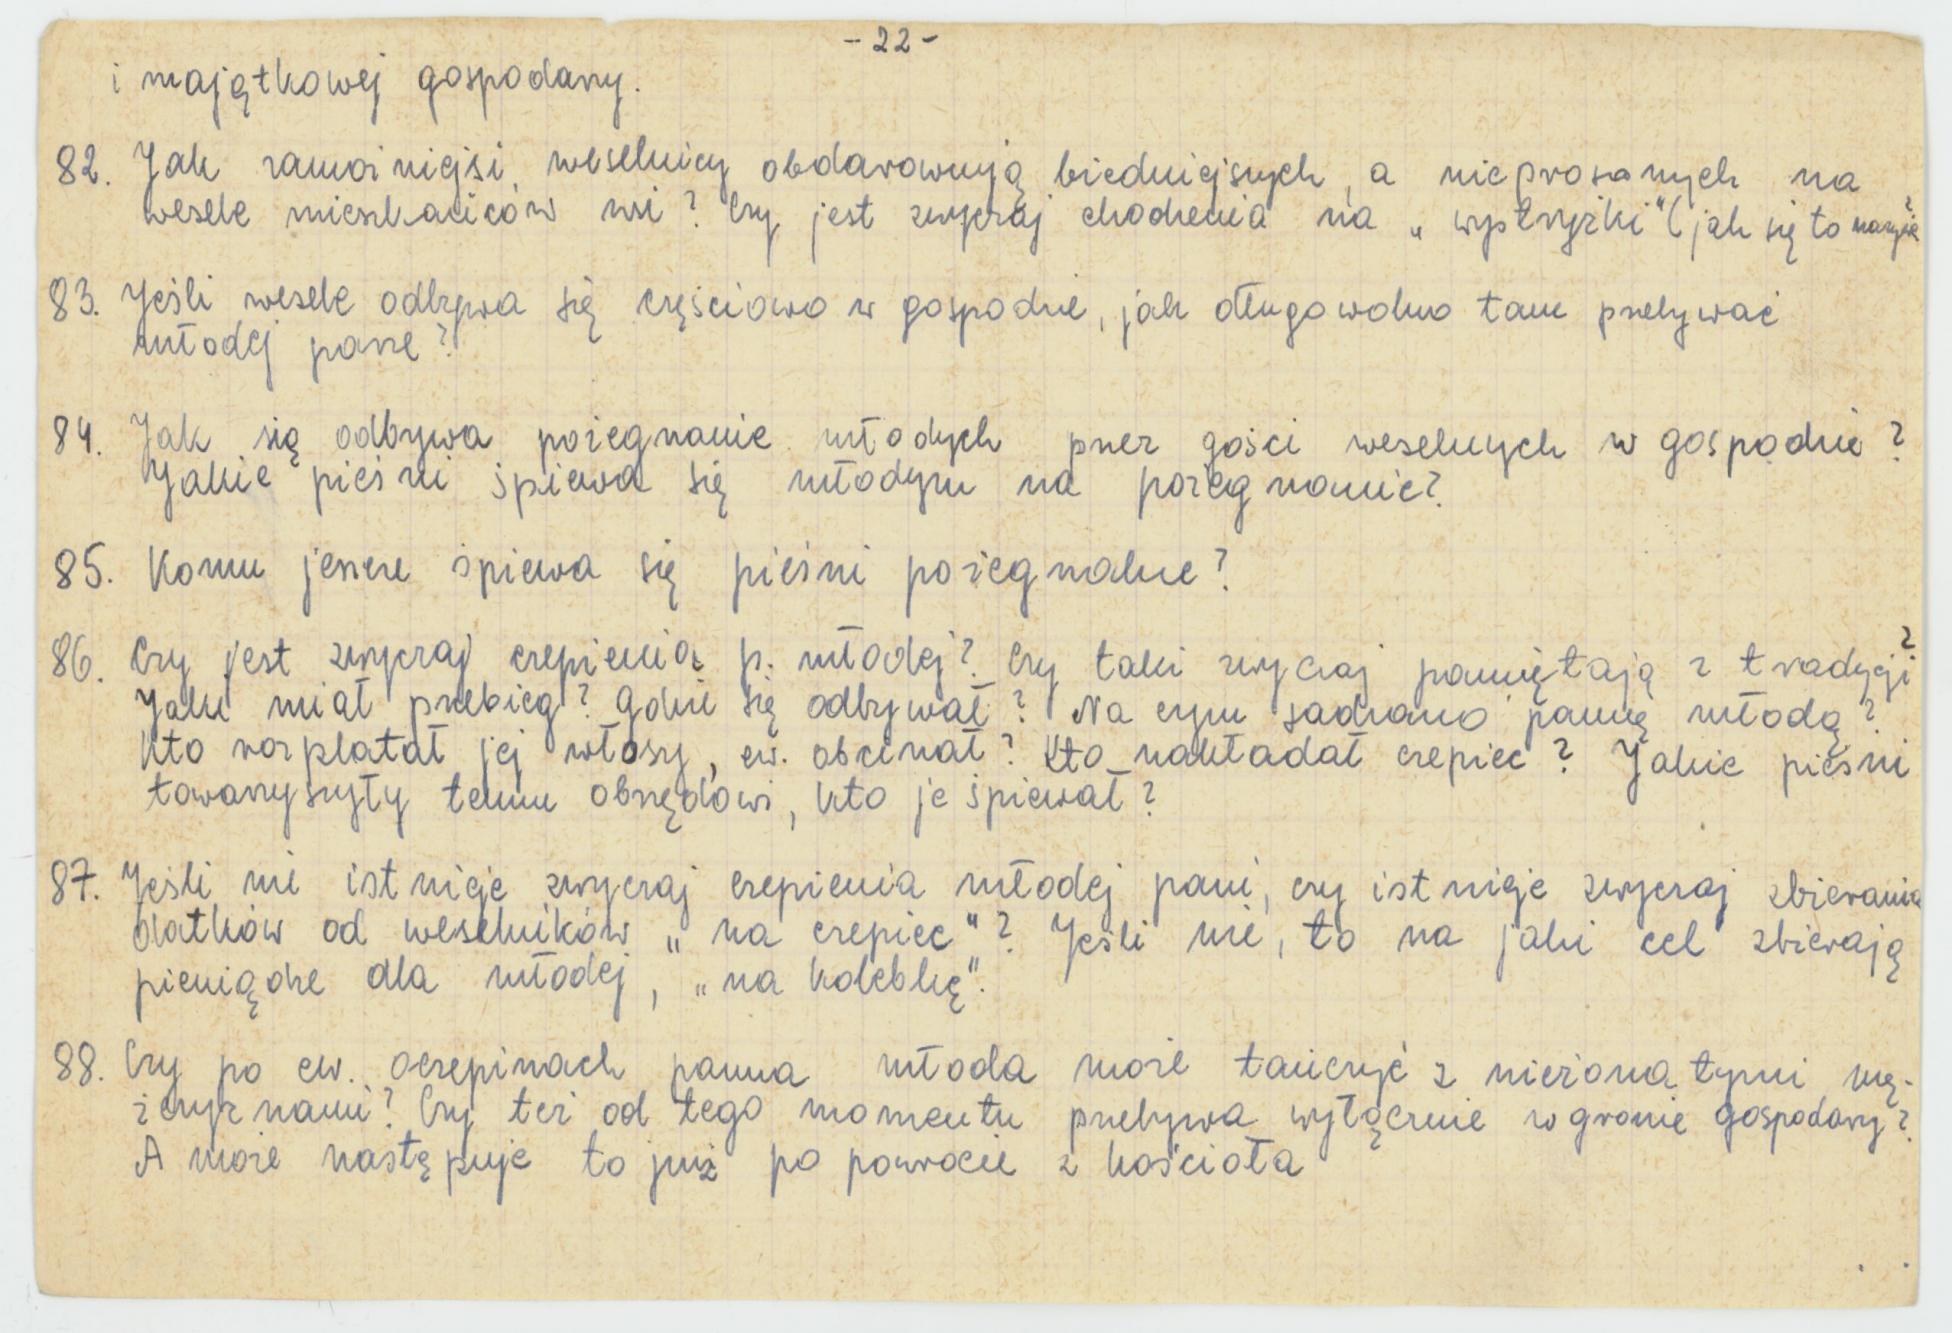 - 22 -
i majątkowej gospodarzy.
82. Jak zamożniejsi weselnicy obdarowują biedniejszych, a nieproszonych na
wesele mieszkańców wsi? Czy jest zwyczaj chodzenia na „wystrzyżki" (jak się to nazywa?
83. Jeśli wesele odbywa się częściowo w gospodzie, jak długo wolno tam przebywać
młodej parze?
84. Jak się odbywa pożegnanie młodych przez gości weselnych w gospodzie?
Jakie pieśni śpiewa się młodym na pożegnanie?
85. Komu jeszcze śpiewa się pieśni pożegnalne?
86. Czy jest zwyczaj czepienia p. młodej? Czy taki zwyczaj pamiętają z tradycji?
Jaki miał przebieg? Gdzie się odbywał? Na czym sadzano pannę młodą?
Kto rozplatał jej włosy, ew. obcinał? Kto nakładał czepiec? Jakie pieśni
towarzyszyły temu obrzędowi, kto je śpiewał?
87. Jeśli nie istnieje zwyczaj czepienia młodej pani, czy istnieje zwyczaj zbierania
datków od weselników „na czepiec"? Jeśli nie, to na jaki cel zbierają
pieniądze dla młodej, „na kolebkę".
88. Czy po ew. oczepinach panna młoda może tańczyć z nieżonatymi mę-
żczyznami? Czy też od tego momentu przebywa wyłącznie w gronie gospodarzy?
A może następuje to już po powrocie z kościoła